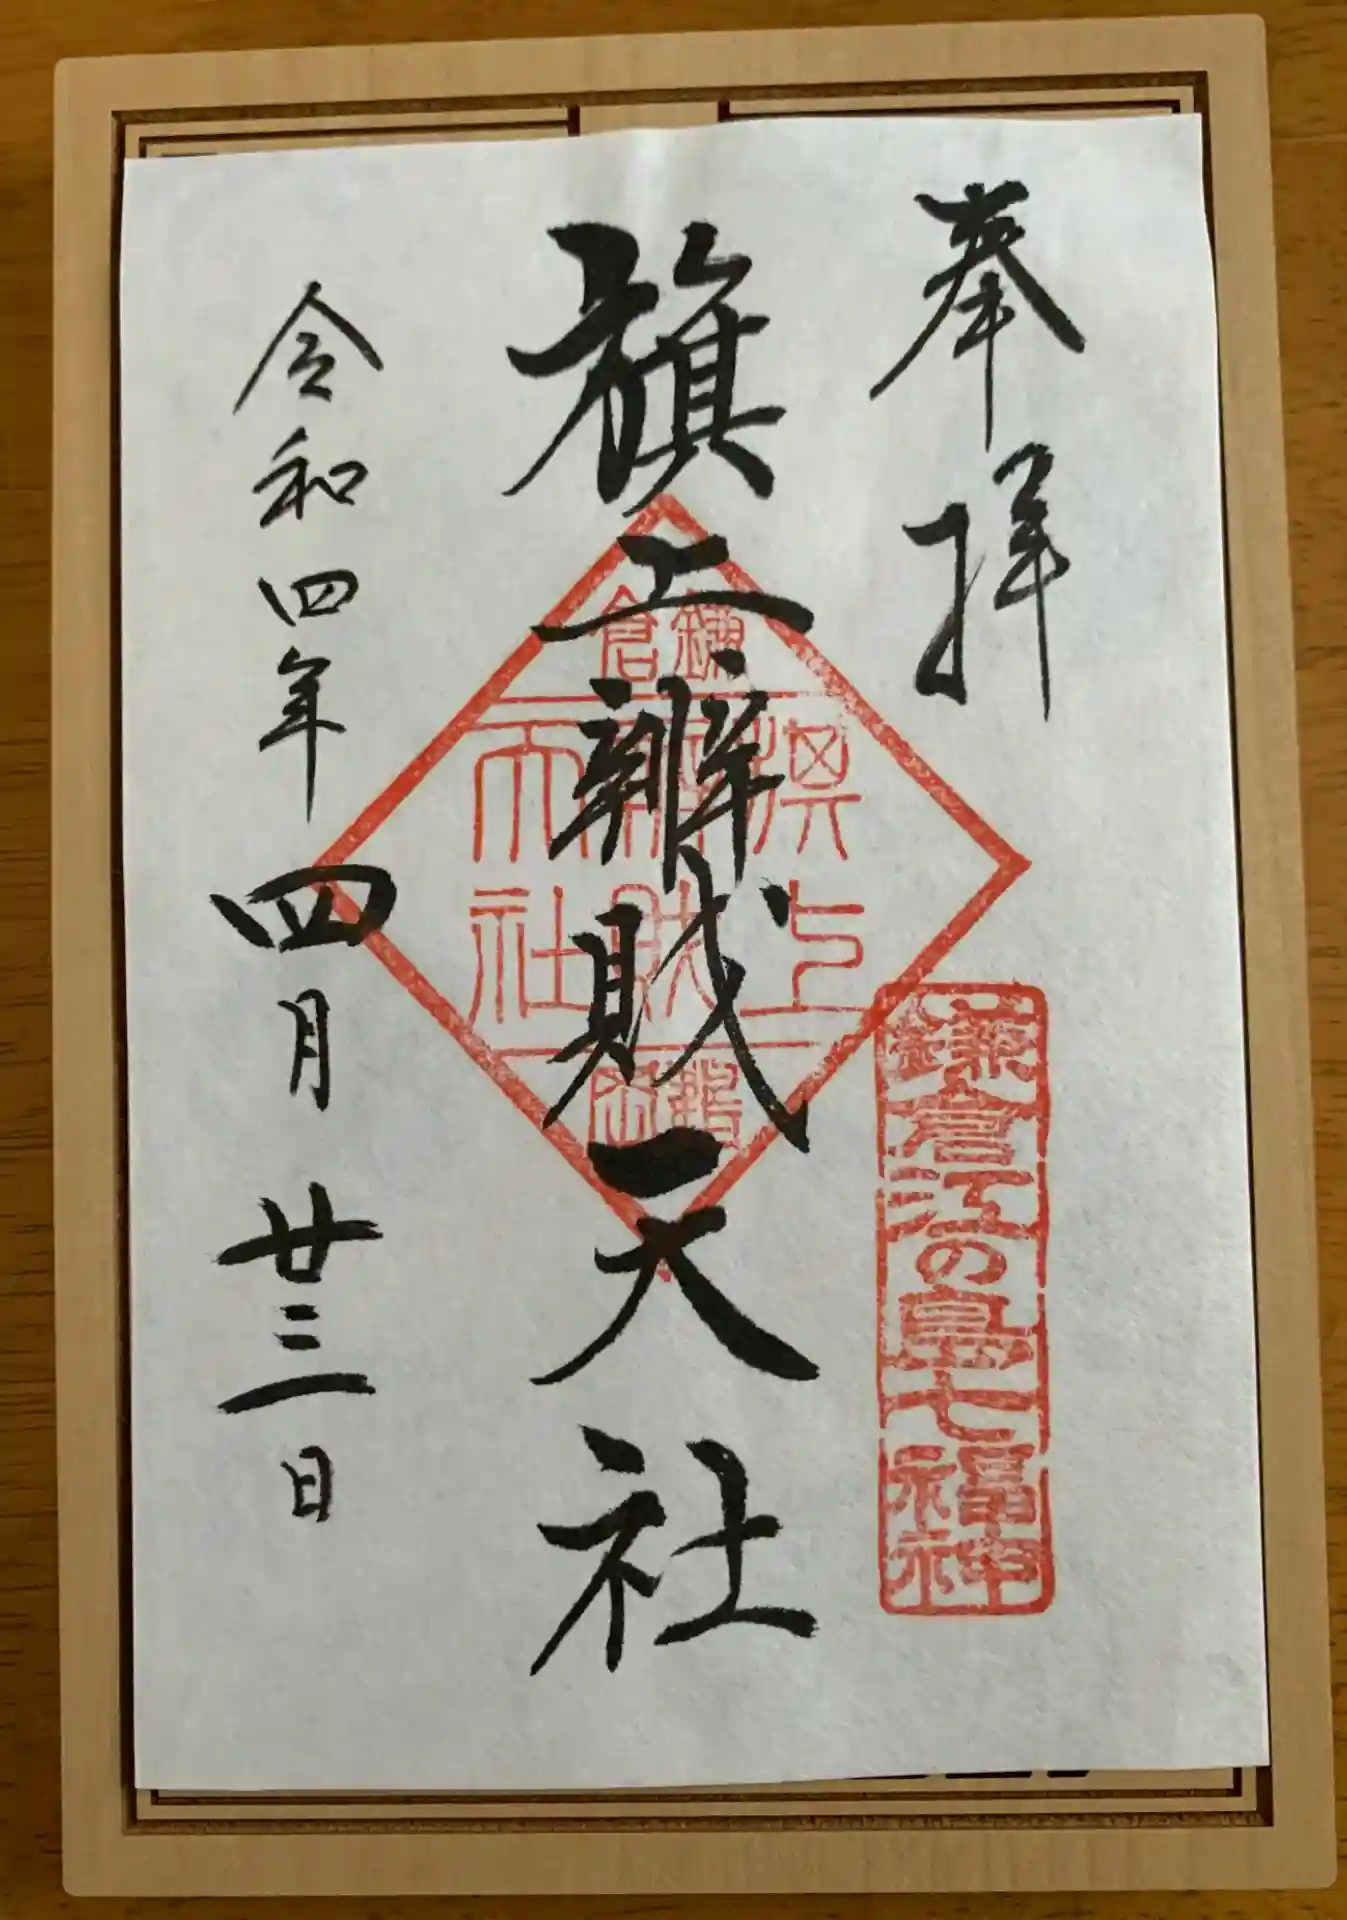 奉拝
鎌倉江の島七福神
旗上辨財天社
鎌倉
旗上
辨財
天社
令和四年四月廿三日